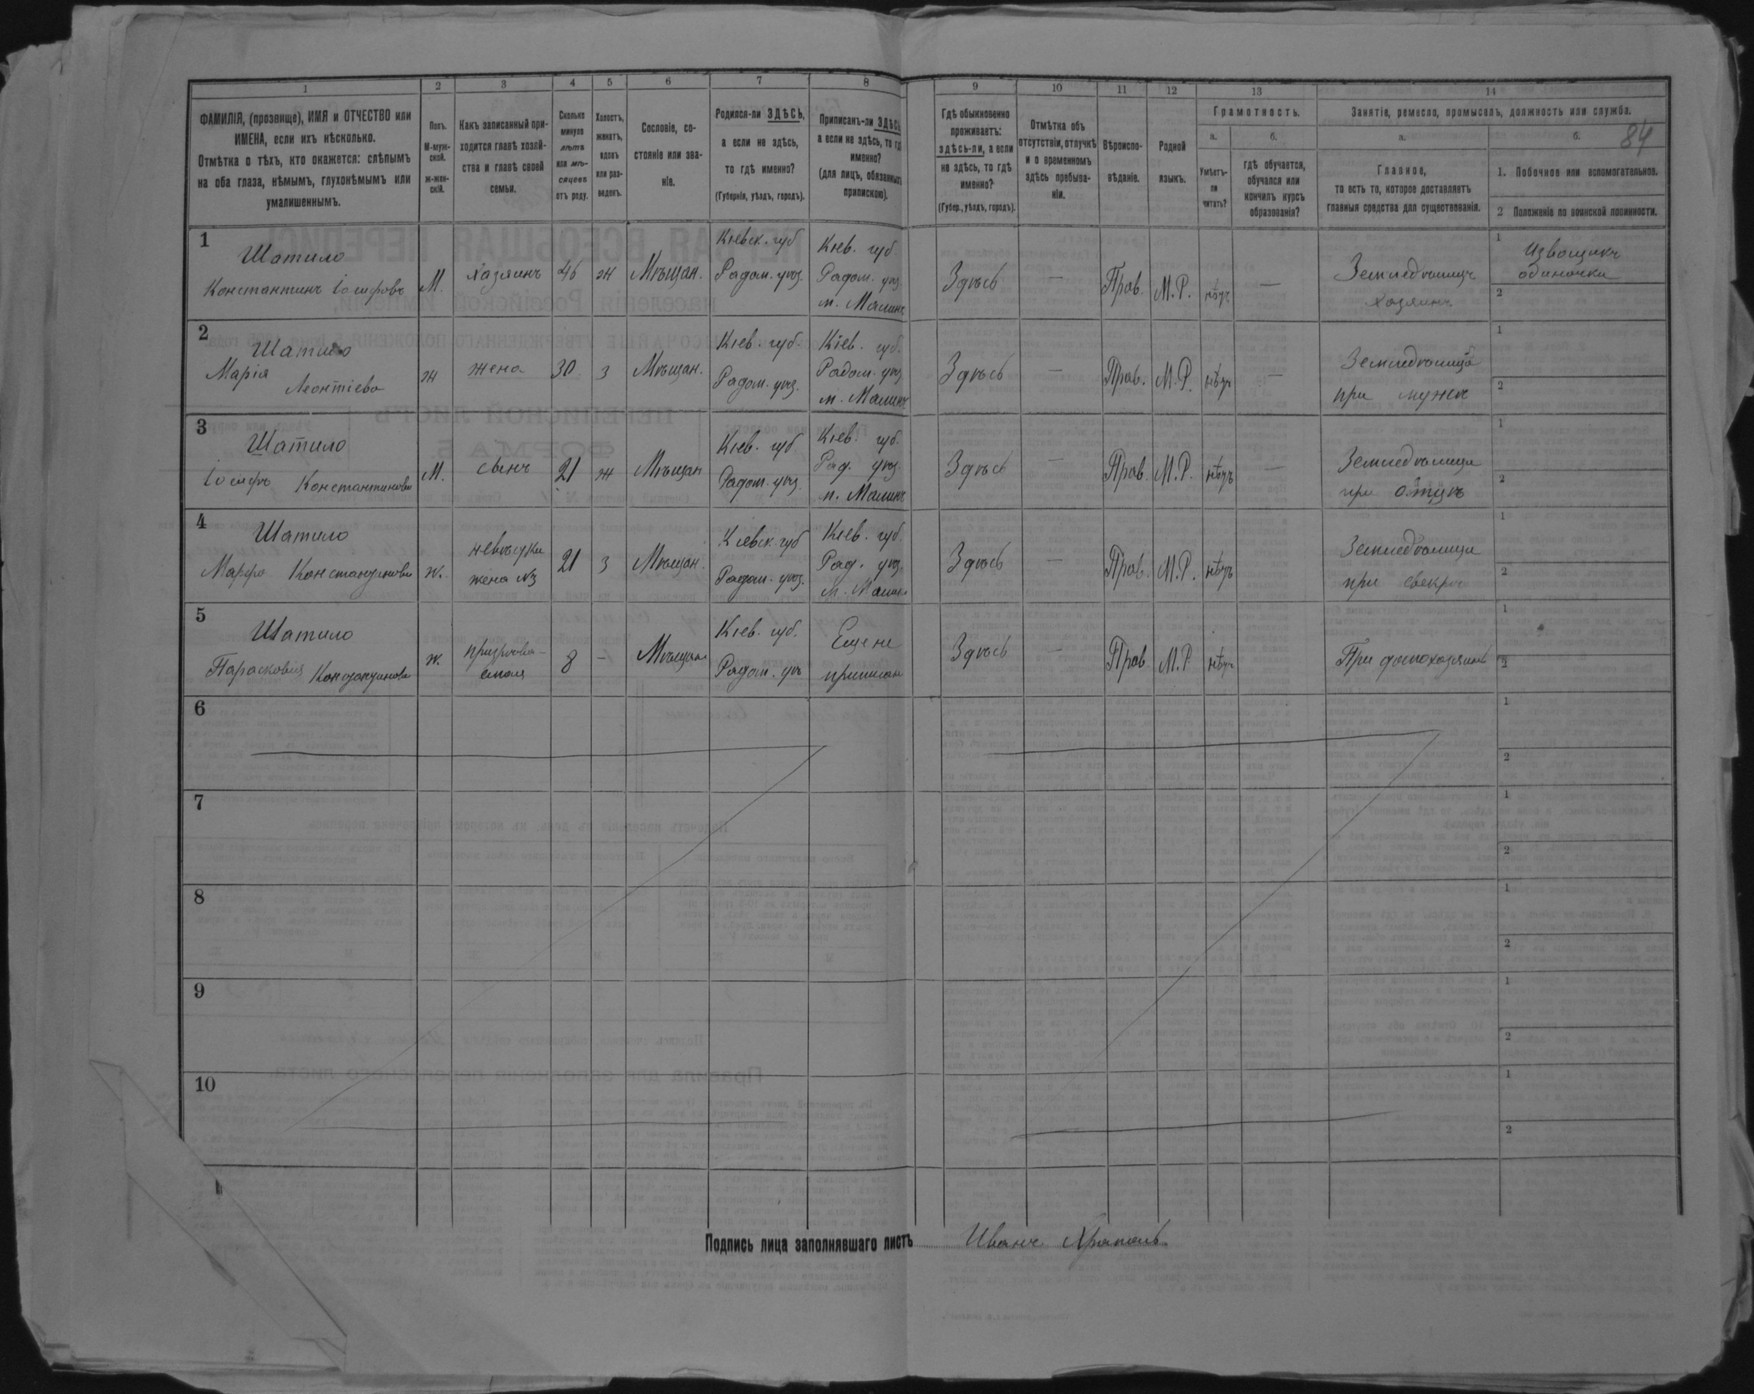 1 2 3 4 5 6 7 8 9 10 11 12 13 14
ФАМИЛІЯ, (прозвище), ИМЯ и ОТЧЕСТВО или
ИМЕНА, если ихъ нѣсколько.
Отмѣтка о тѣхъ, кто окажется: слѣпымъ
на оба глаза, нѣмымъ, глухонѣмымъ или
умалишеннымъ.
Полъ.
М-муж-
ской.
ж-жен-
скій.
Какъ записанный при-
ходится главѣ хозяй-
ства и главѣ своей
семьи.
Сколько
минуло
лѣтъ
или мѣ-
сяцевъ
отъ роду.
Холостъ,
женатъ,
вдовъ
или раз-
веденъ.
Сословіе, со-
стояніе или зва-
ніе.
Родился-ли ЗДѢСЬ,
а если не здѣсь,
то гдѣ именно?
(Губернія, уѣздъ, городъ).
Приписанъ-ли ЗДѢСЬ,
а если не здѣсь, то гдѣ
именно?
(для лицъ, обязанныхъ
припискою).
Гдѣ обыкновенно
проживаетъ:
здѣсь-ли, а если
не здѣсь, то гдѣ
именно?
(Губер., уѣздъ, городъ).
Отмѣтка объ
отсутствіи, отлучкѣ
и о временномъ
здѣсь пребыва-
ніи.
Вѣроиспо-
вѣданіе.
Родной
языкъ.
Грамотность.
а. б.
Умѣетъ-
ли
читать?
гдѣ обучается,
обучался или
кончилъ курсъ
образованія?
Занятіе, ремесло, промыселъ, должность или служба.
а. б. 84
Главное,
то есть то, которое доставляетъ
главныя средства для существованія.
1. Побочное или вспомогательное.
2 Положеніе по воинской повинности.
1
Шатило
Константинъ Іосифовъ
М.
хозяинъ
46
ж
Мѣщан.
Кіевск. губ
Радом. уѣз.
Кіев. губ.
Радом. уѣз.
м. Малинъ
Здѣсь
—
Прав.
М.Р.
нѣтъ
—
Земледѣлецъ
хозяинъ
1 Извощикъ
одиночка
2
2
Шатило
Марія
Леонтіева
ж
жена
30
з
Мѣщан.
Кіев. губ.
Радом. уѣз.
Кіев. губ.
Радом. уѣз.
м. Малинъ
Здѣсь
—
Прав.
М.Р.
нѣтъ
—
Земледѣлица
при мужѣ
1
2
3
Шатило
Іосифъ Константиновъ
М.
сынъ
21
ж
Мѣщан
Кіев. губ
Радом. уѣз.
Кіев. губ.
Рад. уѣз.
м. Малинъ
Здѣсь
—
Прав.
М.Р.
нѣтъ
—
при отцѣ
1
2
4
Шатило
Марфа Константинова
ж.
невѣстка
жена №3
21
з
Мѣщан.
Кіевск. губ
Радом. уѣз.
Кіев. губ
Рад. уѣз.
м. Малинъ
Здѣсь
—
Прав.
М.Р.
нѣтъ
при свекрѣ
1
2
5
Шатило
Парасковія Константинова
ж.
8
—
Мѣщан
Кіев. губ.
Радом. уѣ
Еще не
приписан
Здѣсь
—
Прав
М.Р
нѣтъ
При домохозяинѣ
1
2
6
1
2
7
1
2
8
1
2
9
1
2
10
1
2
Подпись лица заполнявшаго листъ Иванъ